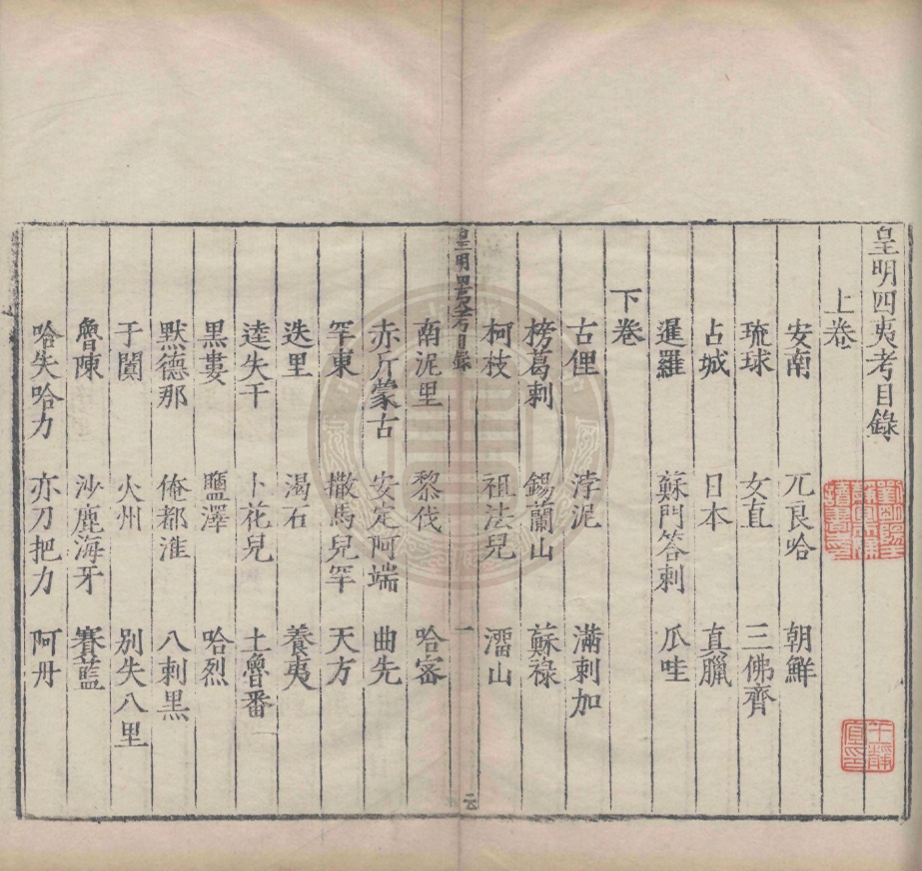 皇明四夷考目錄
上卷
安南 兀良哈 朝鮮
琉球 女直 三佛齊
占城 日本 真臘
暹羅 蘇門答剌 瓜哇
下卷
古俚 浡泥 滿剌加
榜葛剌 錫蘭山 蘇祿
柯枝 祖法兒 溜山
皇明四夷考目錄 一
南泥里 黎伐 哈密
赤斤蒙古 安定阿端 曲先
罕東 撒馬兒罕 天方
迭里 渴石 養夷
逵失干 卜花兒 土魯番
黑婁 鹽澤 哈烈
默德那 俺都淮 八剌黑
于闐 火州 別失八里
魯陳 沙鹿海牙 賽藍
哈失哈力 亦力把力 阿丹